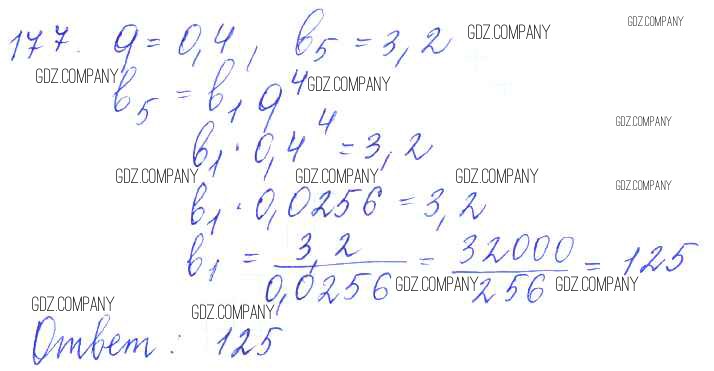 177. q = 0,4, b₅ = 3,2
GDZ.COMPANY GDZ.COMPANY
GDZ.COMPANY GDZ.COMPANY
b₅ = b₁ q⁴
b₁ · 0,4⁴ = 3,2
GDZ.COMPANY
GDZ.COMPANY GDZ.COMPANY GDZ.COMPANY
GDZ.COMPANY
b₁ · 0,0256 = 3,2
b₁ = 3,2/0,0256 = 32000/256 = 125
GDZ.COMPANY GDZ.COMPANY
GDZ.COMPANY GDZ.COMPANY
Ответ: 125